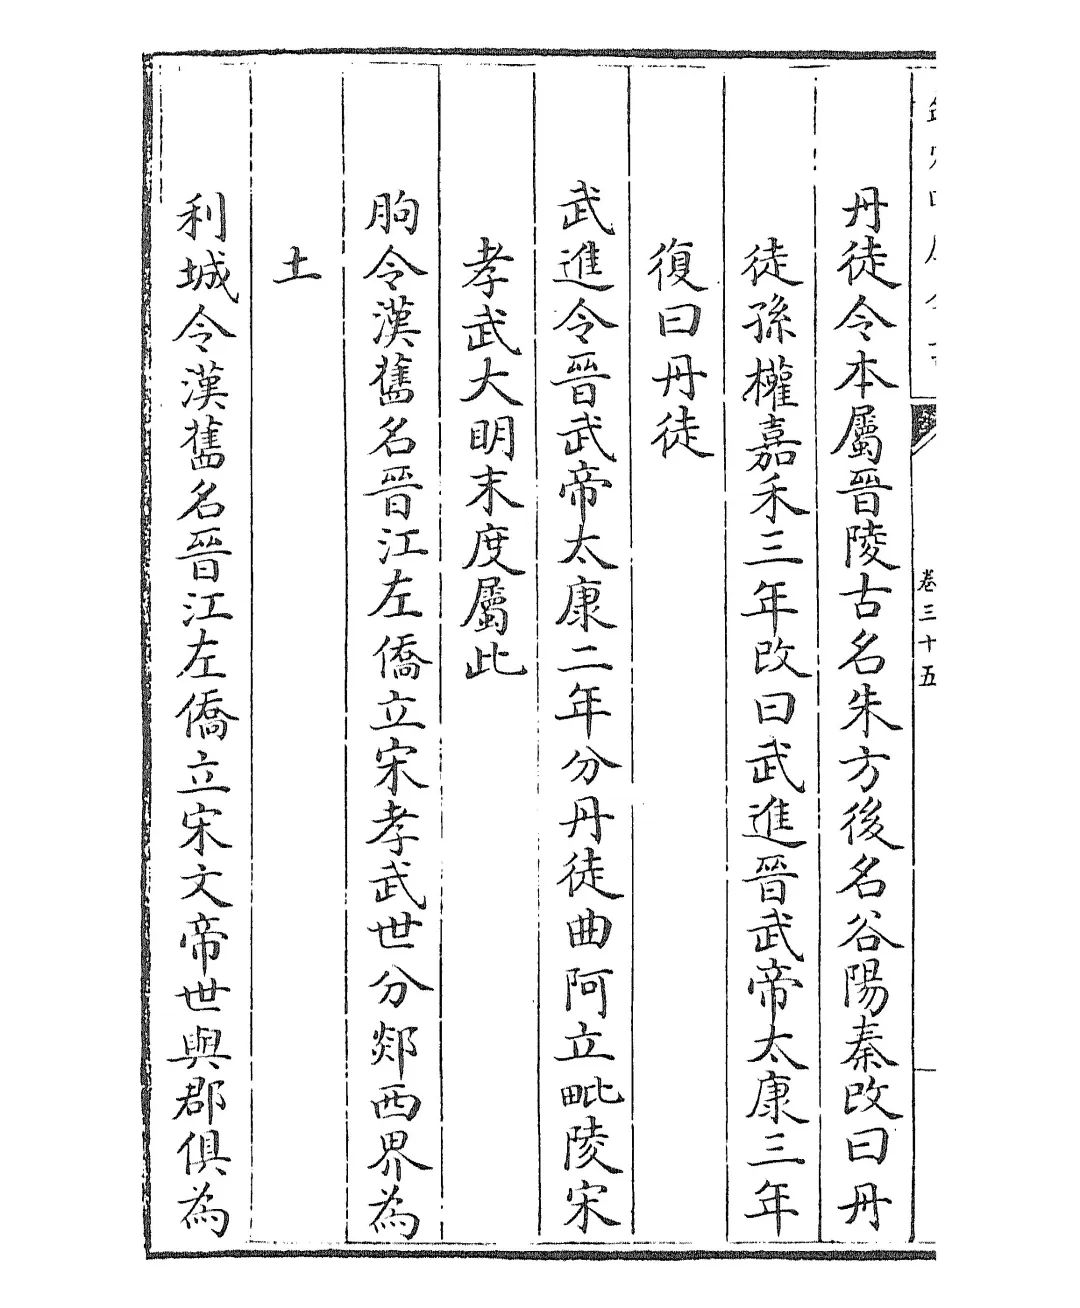 卷三十五
丹徒令本屬晉陵古名朱方後名谷陽秦改曰丹
徒孫權嘉禾三年改曰武進晉武帝太康三年
復曰丹徒
武進令晉武帝太康二年分丹徒曲阿立毗陵宋
孝武大明末度屬此
朐令漢舊名晉江左僑立宋孝武世分郯西界為
土
利城令漢舊名晉江左僑立宋文帝世與郡俱為